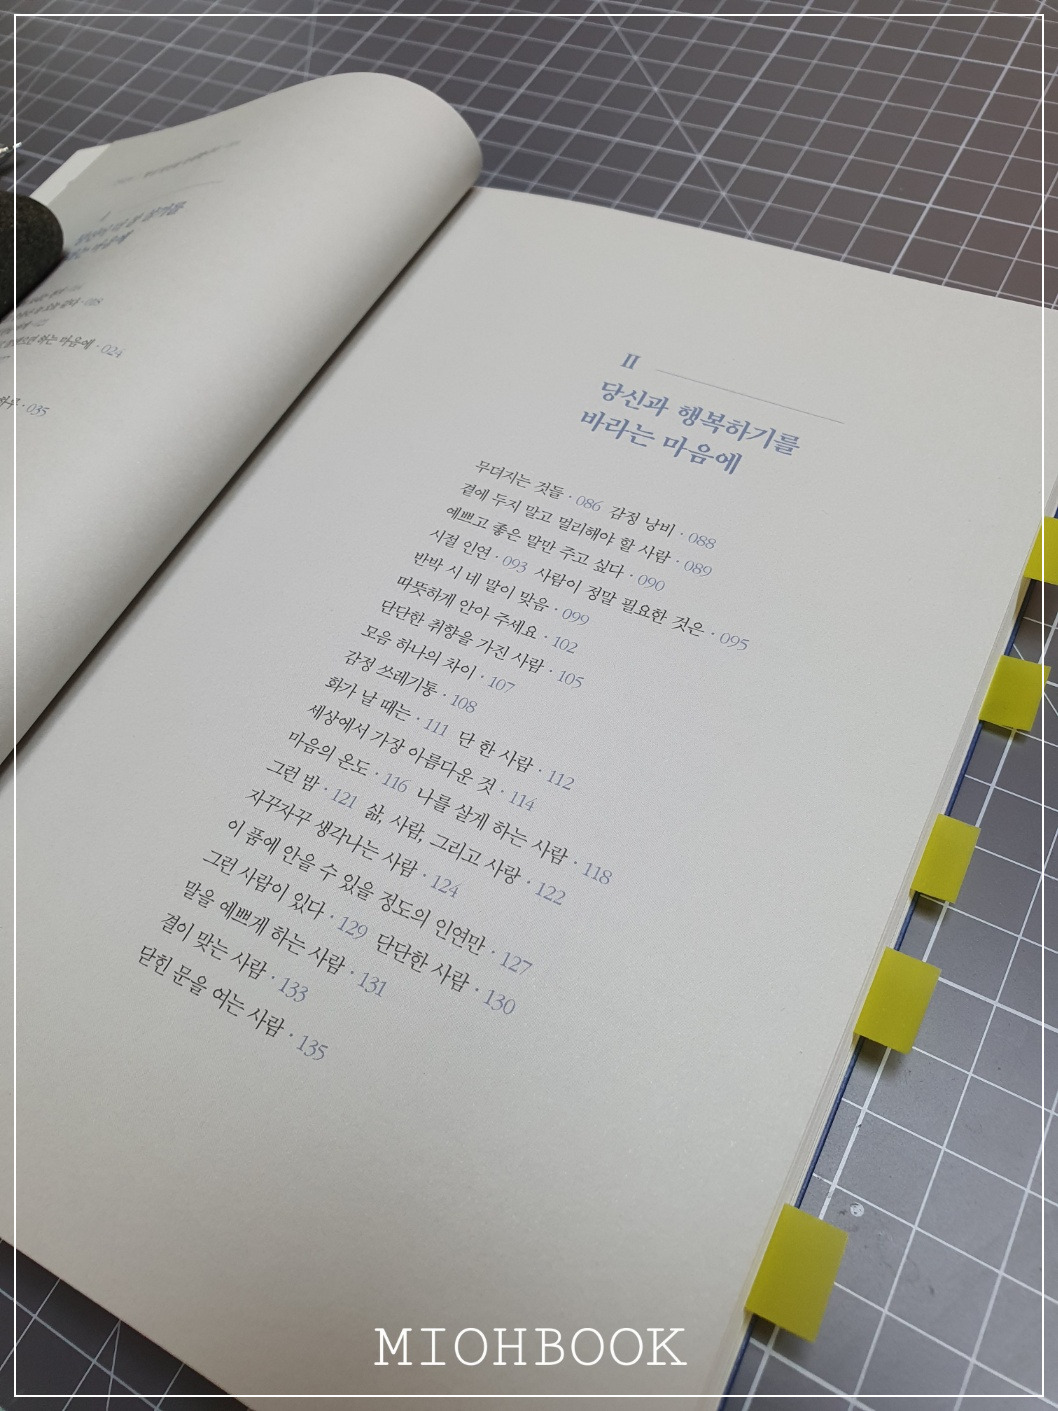 마음에 · 024
035
II
당신과 행복하기를
바라는 마음에
무뎌지는 것들 · 086 감정 낭비 · 088
곁에 두지 말고 멀리해야 할 사람 · 089
예쁘고 좋은 말만 주고 싶다 · 090
시절 인연 · 093 사람이 정말 필요한 것은 · 095
반박 시 네 말이 맞음 · 099
따뜻하게 안아 주세요 · 102
단단한 취향을 가진 사람 · 105
모음 하나의 차이 · 107
감정 쓰레기통 · 108
화가 날 때는 · 111 단 한 사람 · 112
세상에서 가장 아름다운 것 · 114
마음의 온도 · 116 나를 살게 하는 사람 · 118
그런 밤 · 121 삶, 사람, 그리고 사랑 · 122
자꾸자꾸 생각나는 사람 · 124
이 품에 안을 수 있을 정도의 인연만 · 127
그런 사람이 있다 · 129 단단한 사람 · 130
말을 예쁘게 하는 사람 · 131
결이 맞는 사람 · 133
닫힌 문을 여는 사람 · 135
MIOHBOOK